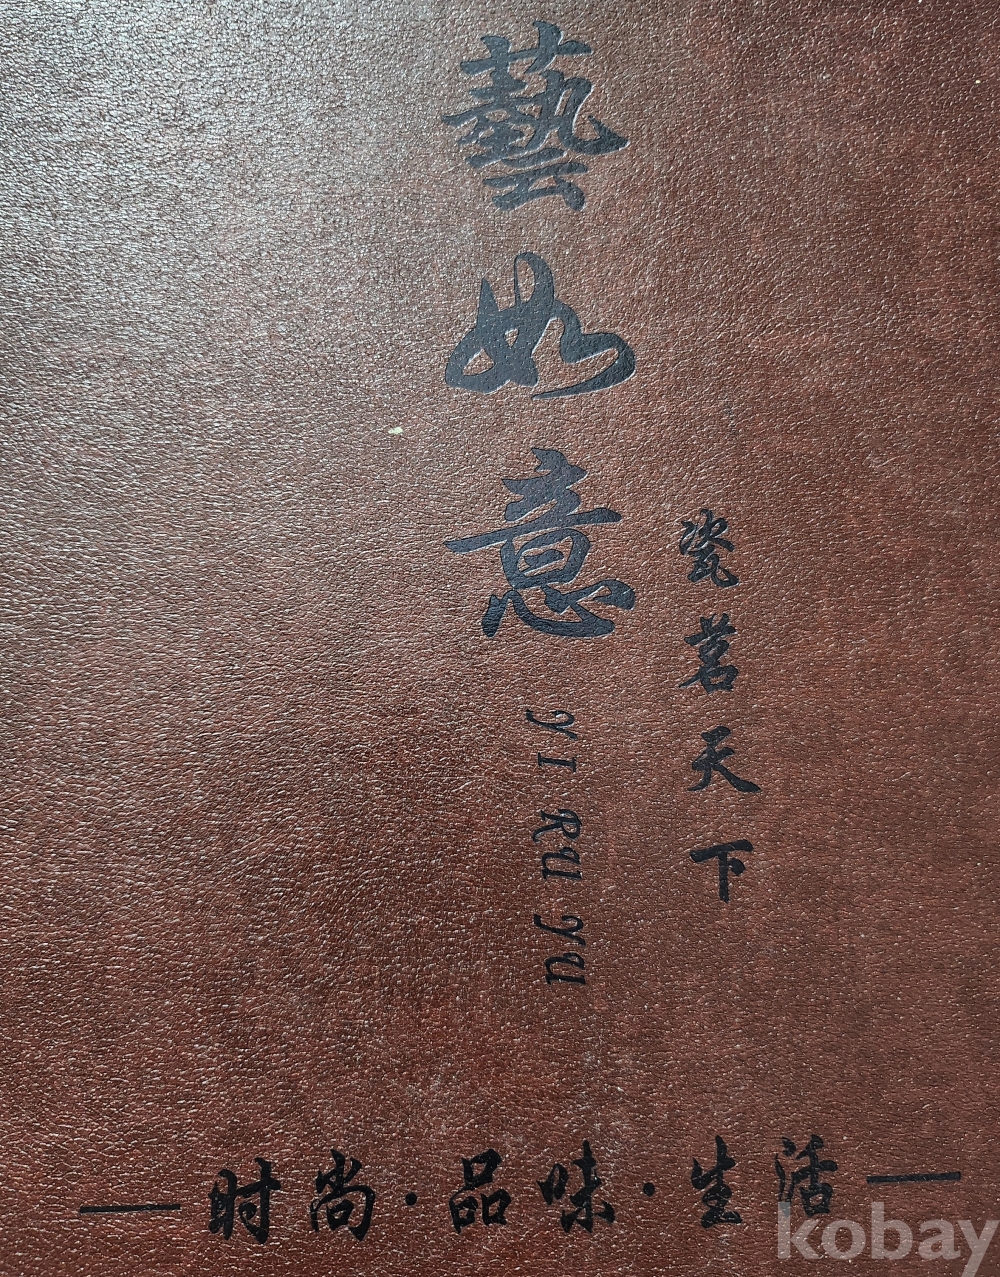 藝如意
瓷茗天下
YI RU YU
时尚·品味·生活
kobay